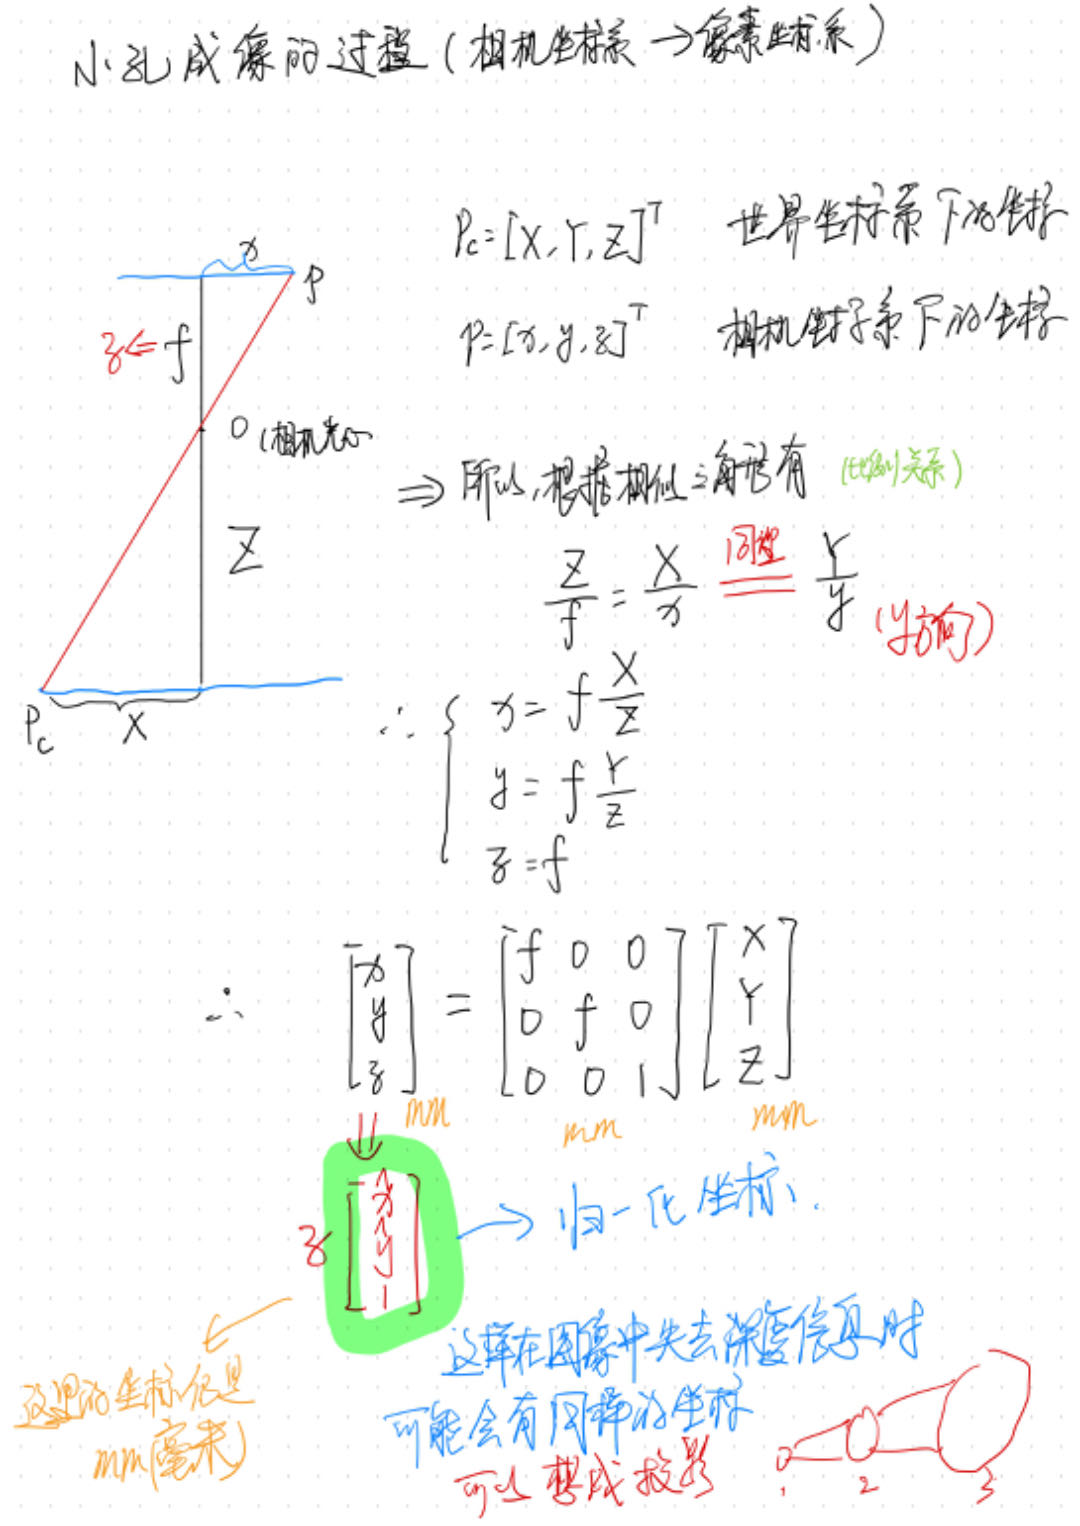 小孔成像的过程(相机坐标系→像素坐标系)
Pc=[X,Y,Z]^T 世界坐标系下的坐标
P=[x,y,z]^T 相机坐标系下的坐标
x
P
z⇐f
O(相机光心
Z
Pc
X
⇒所以,根据相似三角形有 (比例关系)
Z/f = X/x 同理 = Y/y (y方向)
∴ { x = f X/Z
y = f Y/Z
z = f
∴ [x y z] = [f 0 0
0 f 0
0 0 1] [X Y Z]
mm mm mm
⇓
z [x̂ ŷ 1] → 归一化坐标.
这里的坐标依是
mm(毫米)
这样在图像中失去深度信息时
可能会有同样的坐标
可以想成投影
1 2 3